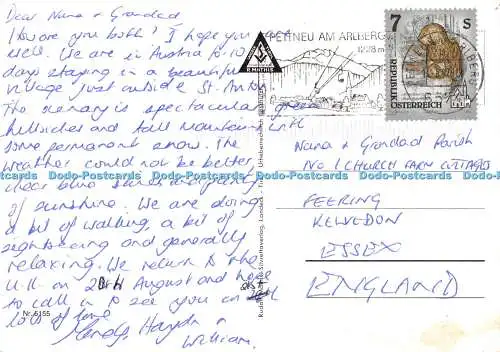 Dear Nana & Grandad
How are you both? I hope you are
well. We are in Austria for 10
days staying in a beautiful
village just outside St. Anton
The scenery is spectacular green
hillsides and tall mountains with
some permanent snow. The
weather could not be better
clear blue skies and plenty
of sunshine. We are doing
a bit of walking, a bit of
sightseeing and generally
relaxing. We return to the
U.K. on 20th August and hope
to call in to see you on
lots of love
Wendy, Haydn &
William.
Nr. 5155
PETTNEU AM ARLBERG
1228 m
7 S
REPUBLIK
ÖSTERREICH
Nana & Grandad Parish
No 1 CHURCH FARM COTTAGES
FEERING
KELVEDON
ESSEX
ENGLAND
Dodo-Postcards